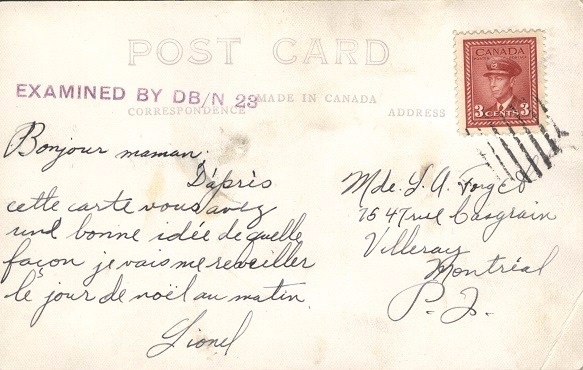 POST CARD
CANADA
3 CENTS 3
EXAMINED BY DB/N 23
MADE IN CANADA
CORRESPONDENCE
ADDRESS
Bonjour maman,
D'après
cette carte vous avez
une bonne idée de quelle
façon je vais me reveiller
le jour de noël au matin.
Lionel
Mde. L. A. Forget
7547 rue Casgrain
Villeray
Montréal
P. Q.